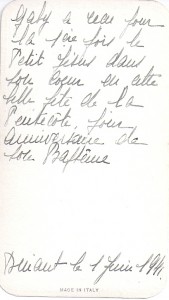 Gaby a reçu pour
la 1ère fois le
Petit Jésus dans
son coeur en cette
belle fête de la
Pentecôte jour
anniversaire de
son Baptême
Dinant le 1 Juin 1941
MADE IN ITALY